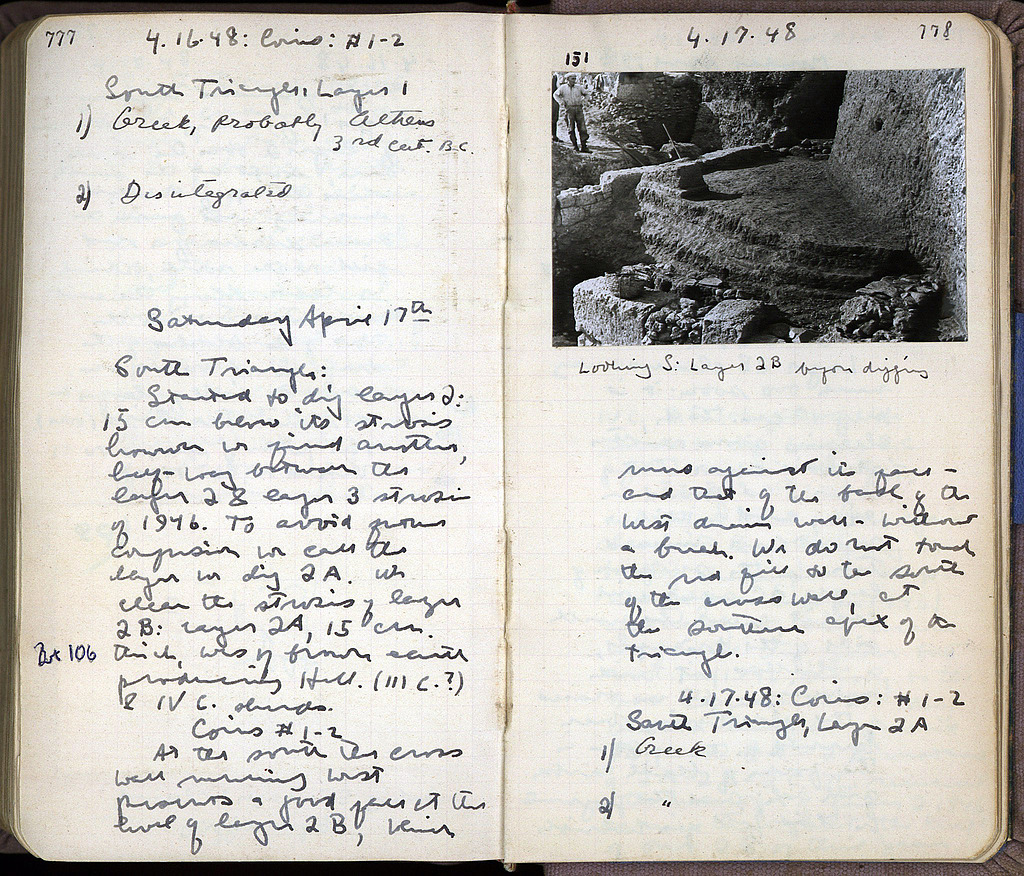 777
4.16.48: Coins: #1-2
South Triangle, Layer 1
1) Greek, probably Athens
3rd cent. B.C.
2) Disintegrated
Saturday April 17th
South Triangle:
Started to dig layer 2:
15 cm below its strosis
however we find another,
half-way between the
layer 2 & layer 3 strosis
of 1946. To avoid
confusion we call the
layer we dig 2A. We
clean the strosis of layer
2B: Layer 2A, 15 cm.
Bot 106
thick, was of brown earth
producing Hell. (III C.?)
& IV C. sherds.
Coins #1-2
At the south the cross
wall running west
presents a good face at the
level of layer 2B, which
778
4.17.48
151
Looking S: Layer 2B before digging
runs against its face -
and that of the back of the
west drain wall - without
a break. We do not touch
the red fill to the south
of the cross wall, at
the southern apex of the
triangle.
4.17.48: Coins: #1-2
South Triangle, Layer 2A
1) Greek
2) "